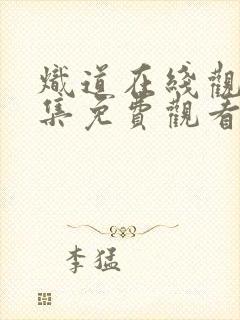 熾道在綫觀
集免費觀看
李猛